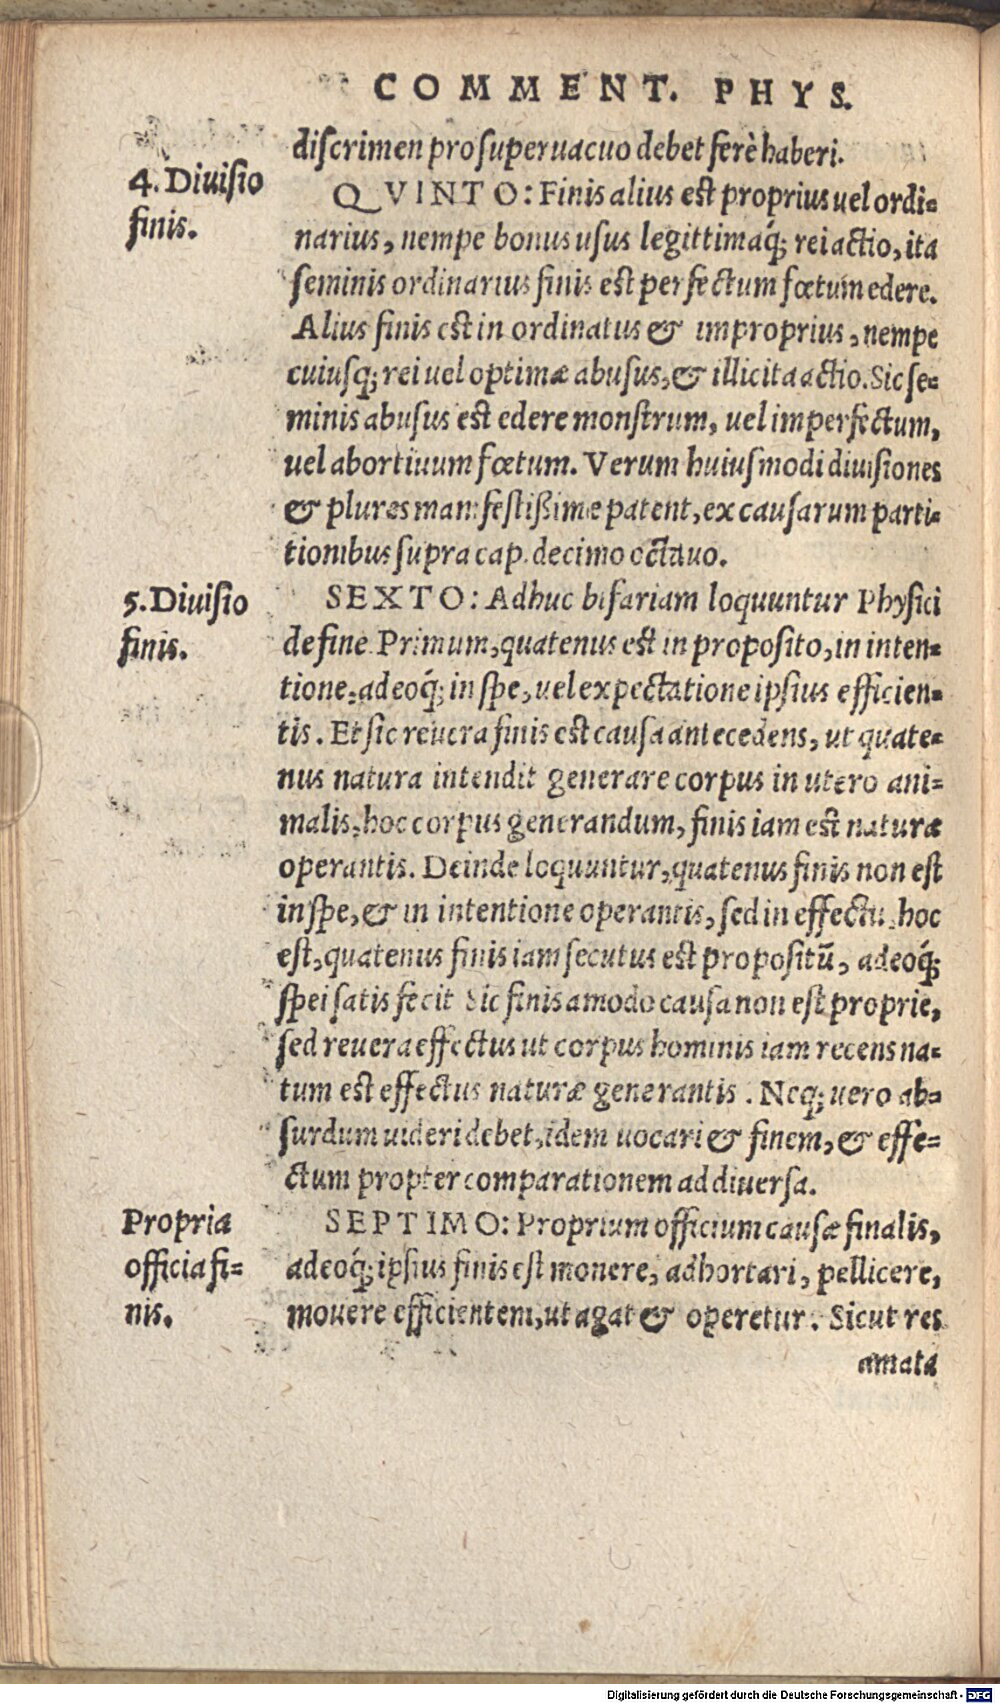 COMMENT. PHYS.
discrimen pro superuacuo debet ferè haberi.
4. Diuisio
finis.
QVINTO: Finis alius est proprius uel ordi-
narius, nempe bonus usus legittimaq́; rei actio, ita
seminis ordinarius finis est perfectum fœtum edere.
Alius finis est inordinatus & improprius, nempe
cuiusq; rei uel optimæ abusus, & illicita actio. Sic se-
minis abusus est edere monstrum, uel imperfectum,
uel abortiuum fœtum. Verum huiusmodi diuisiones
& plures manifestißime patent, ex causarum parti-
tionibus supra cap. decimo octauo.
5. Diuisio
finis.
SEXTO: Adhuc bifariam loquuntur Physici
de fine. Primum, quatenus est in proposito, in inten-
tione, adeoq́; in spe, uel expectatione ipsius efficien-
tis. Et sic reuera finis est causa antecedens, ut quate-
nus natura intendit generare corpus in utero ani-
malis, hoc corpus generandum, finis iam est naturæ
operantis. Deinde loquuntur, quatenus finis non est
in spe, & in intentione operantis, sed in effectu, hoc
est, quatenus finis iam secutus est propositū, adeoq́;
spei satisfecit Sic finis amodo causa non est proprie,
sed reuera effectus ut corpus hominis iam recens na-
tum est effectus naturæ generantis. Neq; uero ab-
surdum uideri debet, idem uocari & finem, & effe-
ctum propter comparationem ad diuersa.
Propria
officia fi-
nis.
SEPTIMO: Proprium officium causæ finalis,
adeoq́; ipsius finis est monere, adhortari, pellicere,
mouere efficientem, ut agat & operetur. Sicut res
amata
Digitalisierung gefördert durch die Deutsche Forschungsgemeinschaft - DFG